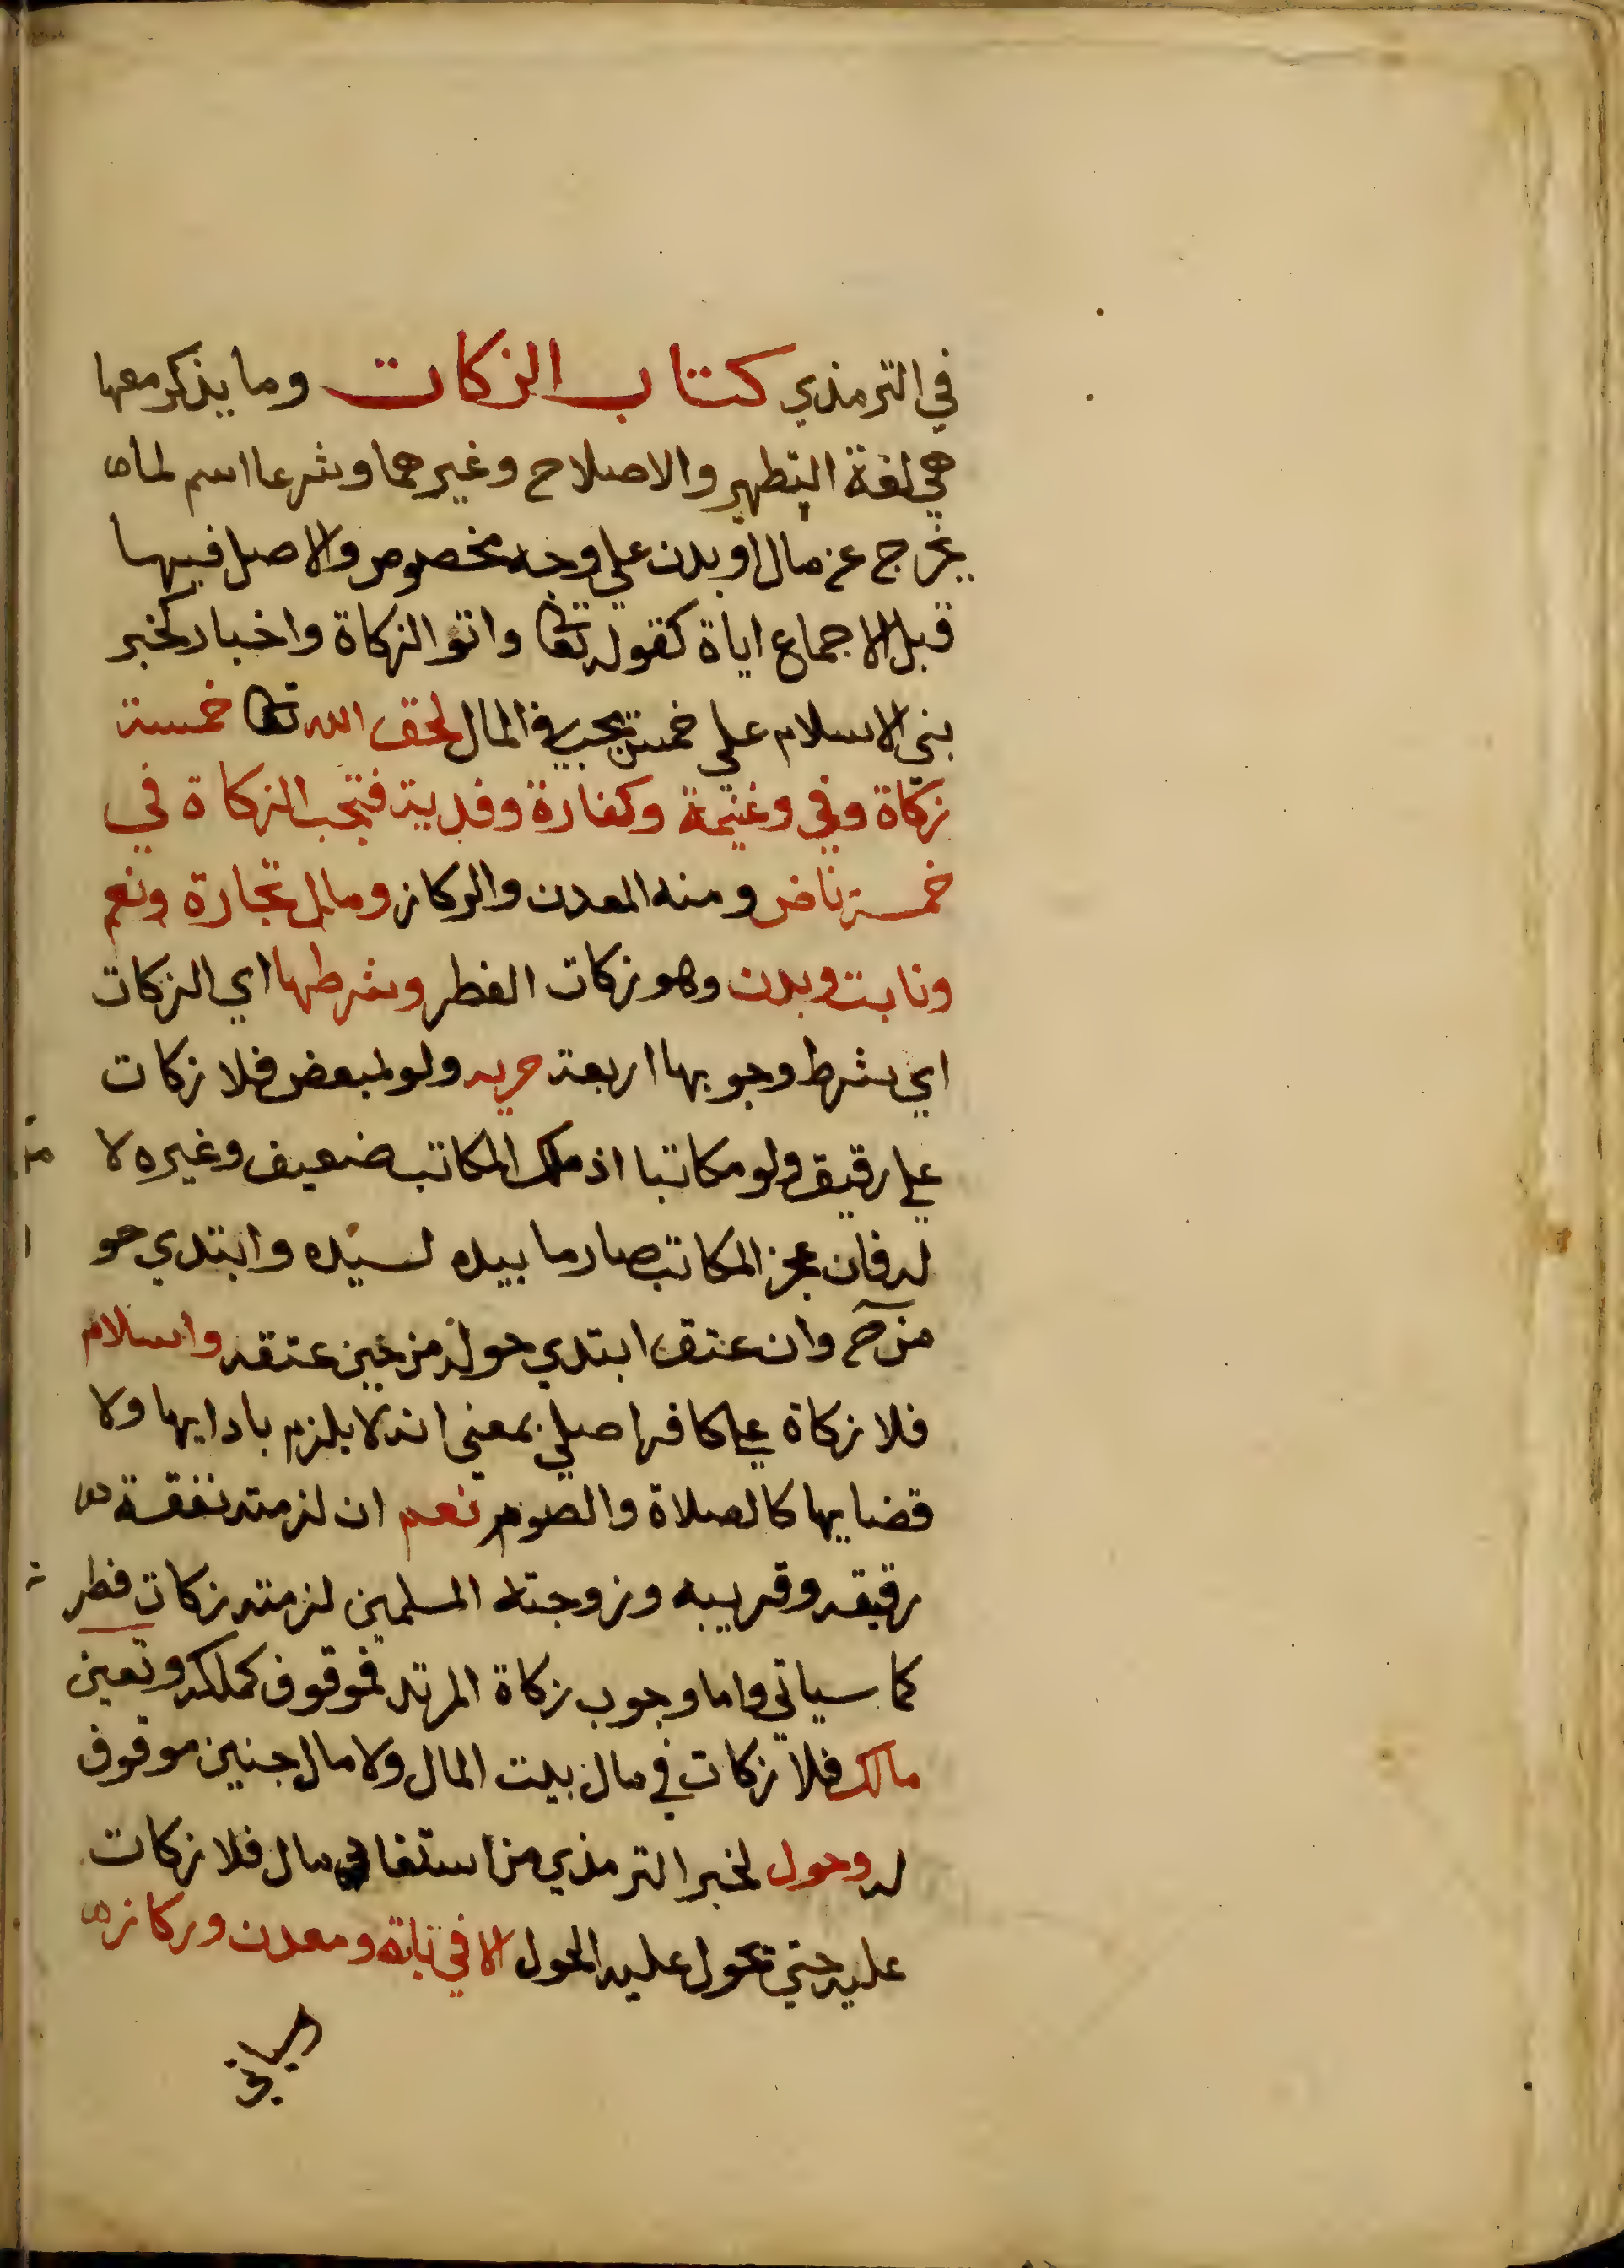 في الترمذي كتاب الزكات وما يذكر معها
هي لغة التطهير والاصلاح وغيرهما وشرعا اسم لما
يخرج عن مال او بدن علي وجه مخصوص والاصل فيها
قبل الاجماع اياة كقوله تعا واتو الزكاة واخبار كخبر
بني الاسلام علي خمس يجب في المال لحق الله تعا خمسة
زكاة وفي وغنيمة وكفارة وفدية فتجب الزكاة في
خمسة ناض ومنه المعدن والركاز ومال تجارة ونعم
ونابت وبدن وهو زكات الفطر وشرطها اي الزكات
اي شرط وجوبها اربعة حريه ولو لمبعض فلا زكات
علي رقيق ولو مكاتبا اذ ملك المكاتب ضعيف وغيره لا
له فان عجز المكاتب صار ما بيده لسيده وابتدي حو
من ح وان عتق ابتدي حوله من حين عتقه واسلام
فلا زكاة علي كافر اصلي بمعني انه لا يلزم بادايها ولا
قضايها كالصلاة والصوم نعم ان لزمته نفقة
رقيقه وقريبه وزوجته المسلمين لزمته زكات فطر
كما سياتي واما وجوب زكاة المرتد فموقوف كملكه وتعين
مالك فلا زكات في مال بيت المال ولا مال جنين موقوف
له وحول لخبر الترمذي من استفاد مال فلا زكات
عليه حتي يحول عليه الحول الا في نابة ومعدن وركاز